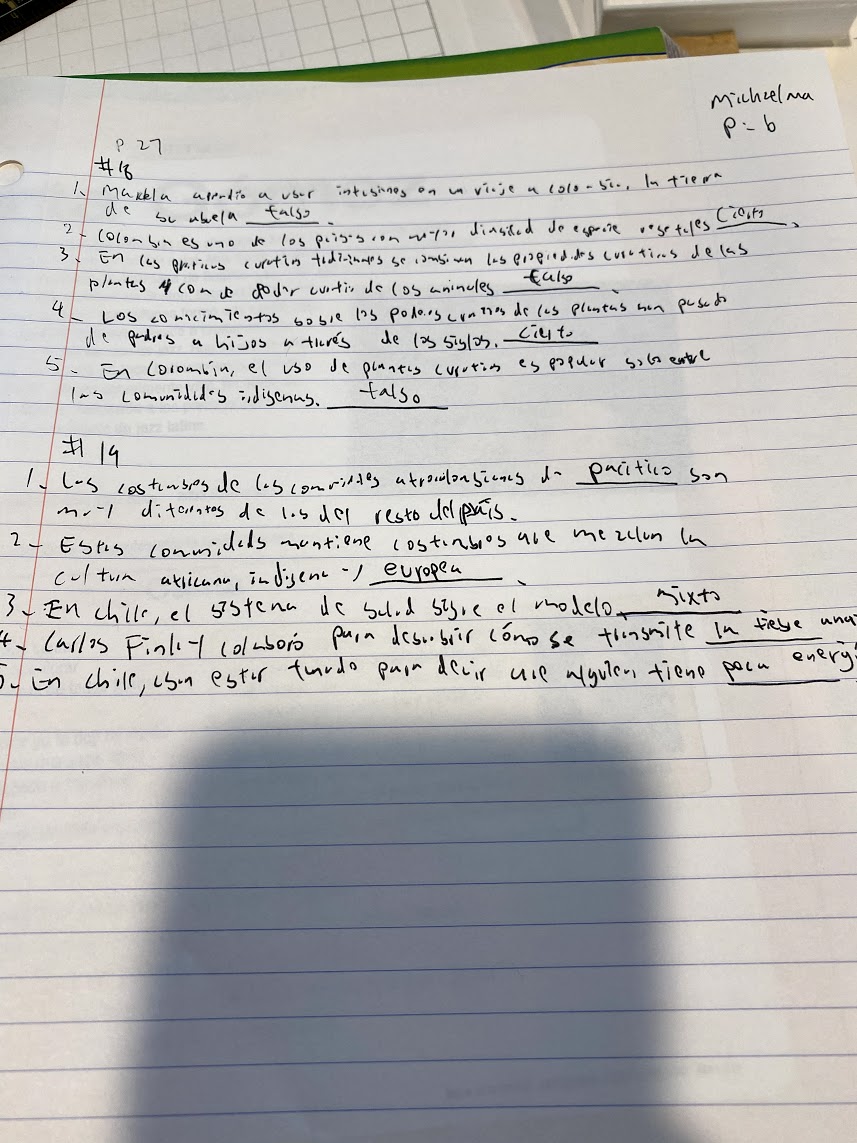 Michael ma
P - 6
P 27
#18
1. aprendio a usar infusiones en un viaje a la tierra
de su abuela falso.
2- Colombia es uno de los paises con mayor de especie vegetales Cierto.
3. En las practicas se combinan las propiedades curativas de las
plantas y con de poder de los animales falso.
4- Los conocimientos sobre los poderes curativos de las plantas han pasado
de padres a hijos a través de los siglos. cierto
5- En Colombia, el uso de plantas curativas es popular solo entre
las comunidades indigenas. falso
# 19
1. Las costumbres de las comunidades del pacifico son
muy diferentes de los del resto del país.
2- Estas comunidades mantiene costumbres que mezclan la
cultura africana, indigena y europea.
3- En chile, el sistema de salud sigue el modelo mixto
4- Carlos Finlay colaboró para descubrir cómo se transmite la fiebre
5- En chile, usan estar para decir que alguien tiene poca energi